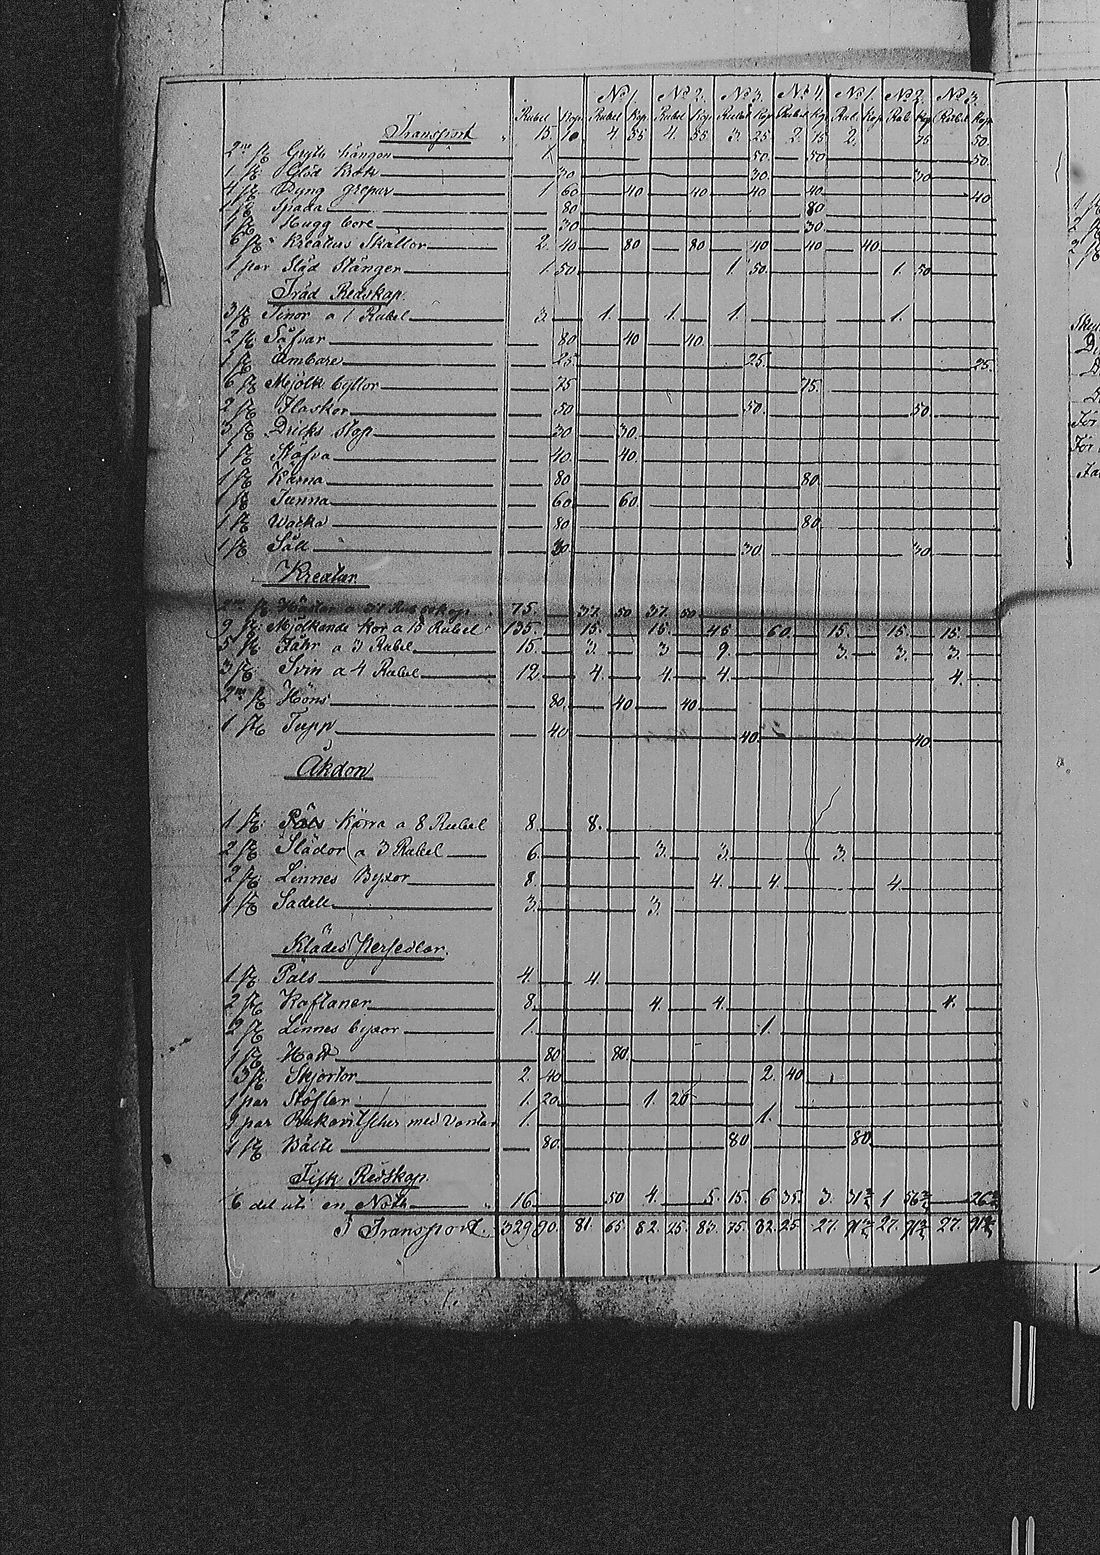 No 1 No 2. No 3. No 4. No 1. No 2. No 3.
Rubel Kop. Rubel Kop Rubel Kop. Rubel Kop. Rubel Kop Rub. Kop. Rub. Kop. Rubel Kop
Transport 15 10. 4 55 4. 55 3. 25 2. 15 2. 75 50
2ne st. Gryte hängen 1. 50. 50. 50.
1 st. 30. 30. 30
4 st. Dyng Grepar 1 60 40 40. 40 40. 40
2 st. Spada 80 80
1 st. Hugg bore 30 30.
6 st. Kreaturs Skällor 2. 40 80 80. 40 40 40.
1 par Släd Stänger 1. 50. 1 50. 1. 50
Träd Redskap.
3 st. Tinor a 1 Rubel 3. 1. 1. 1. 1.
2 st. Såfvar 80 40 40.
1 st. Ämbare 25 25. 25.
6 st. Mjölk byttor 75 75.
2 st. Flaskor 50 50. 50.
3 st. Dricks stop 30 30.
1 st. Stäfva 40. 40.
1 st. Kärna 80 80.
1 st. Tunna 60 60.
1 st. Wacka 80 80.
1 st. Såll 30 30. 30
Kreatur
2ne st. Hästar a 37 Rub 50 kop 75. 37. 50 37. 50
9 st. Mjölkande Kor a 15 Rubel 135. 15. 15. 45. 60. 15. 15. 15.
5 st. Fåhr a 3 Rubel 15. 3. 3. 9. 3. 3. 3.
3 st. Svin a 4 Rubel 12. 4. 4. 4. 4.
2ne st. Höns 80. 40 40.
1 st. Tupp 40 40. 40.
Åkdon
1 st. Kärra a 8 Rubel 8. 8.
2 st. Slädor a 3 Rubel 6. 3. 3. 3.
2 st. Linnes Byxor 8. 4. 4. 4.
1 st. Sadell 3. 3.
Klädes Persedlar.
1 st. Päls 4. 4.
2 st. Kaftaner 8. 4. 4. 4.
2 st. Linnes byxor 1. 1.
1 st. Hatt 80 80.
3 st. Skjortor 2. 40 2. 40
1 par Stöflar 1. 20 1. 20
9 par Rukavitscher med Vantar 1. 1.
1 st. Bälte 80. 80 80.
Fisk Redskap.
6 del uti en Noth 16 50 4. 5. 15. 6 35. 3. 1 26
I Transport 329 90. 81. 65 82. 15 83. 75 82. 25 27. 27. 27.